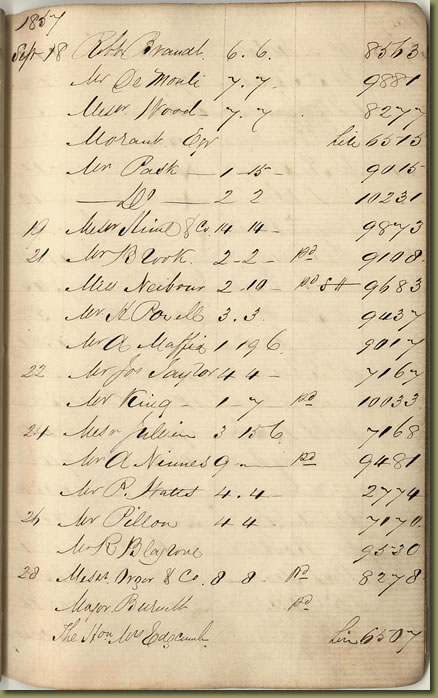 1857
Sept 18 Robt Brandt 6. 6. 8563
Mr De Monti 7. 7. 9881
Messr Wood 7. 7. 8277
Morant Esqr 6515
Mr Pask 1 - 15 - 9015
Do 2 2 10231
19 Messr & Co 14 14 - 9873
21 Mr Brook 2 - 2 - Pd 9108
Miss Neibour 2 - 10 - Pd 9683
Mr H Powell 3. 3. 9437
Mr A Maffia 1 19 6 9017
22 Mr Jos Taylor 4 4 - 7167
Mr King - 1 - 7 - Pd 10033
24 Messr Jullien 3 15 6 7168
Mr A Ninnes 9 - Pd 9481
Mr P. Watts 4. 4 - 2774
26 Mr Pillon 4 4 7170
Mr R Blagrove 9530
28 Messr & Co. 8 - 8 - Pd 8278
Major Burnett Pd
The Honl Mrs Edgcumbe 6507